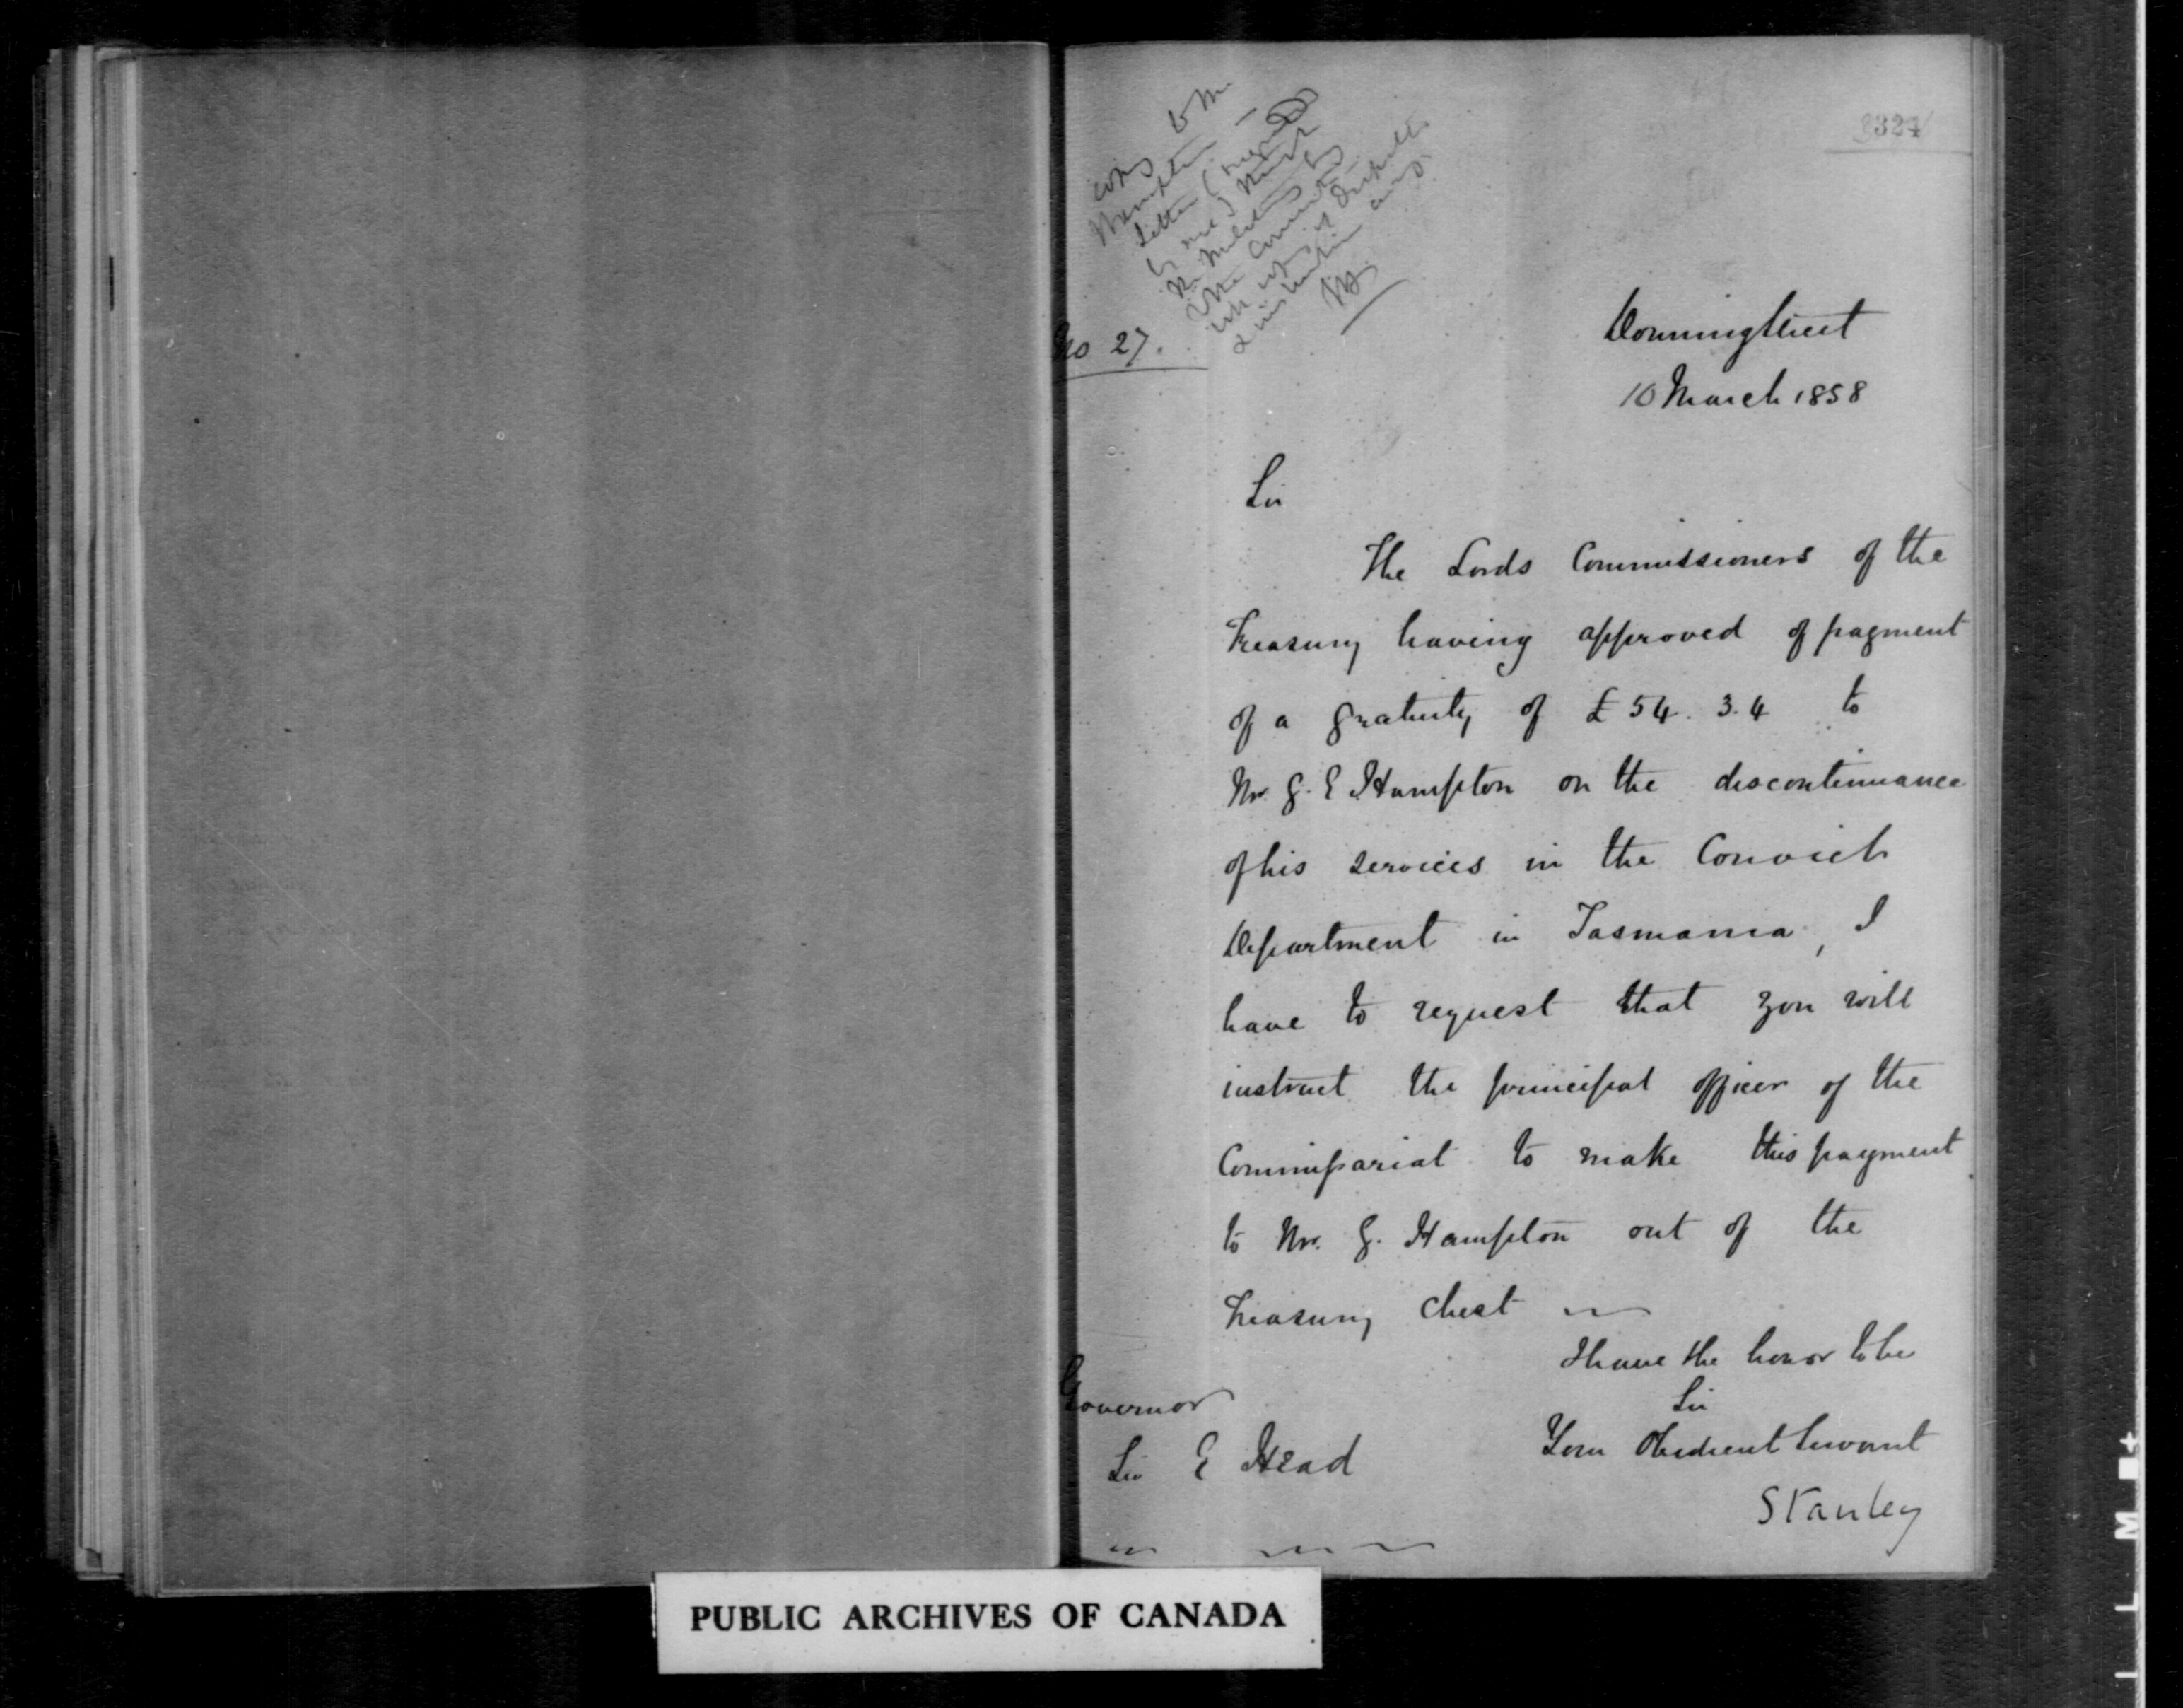 324
No 27.
Downing Street
10 March 1858
Sir
The Lords Commissioners of the
Treasury having approved of payment
of a gratuity of £54. 3. 4 to
Mr. G. E Hampton on the discontinuance
of his services in the Convict
Department in Tasmania, I
have to request that you will
instruct the principal officer of the
Commissariat to make this payment
to Mr. G. Hampton out of the
Treasury Chest
I have the honor to be
Sir
Your Obedient Servant
Stanley
Governor
Sir E Head
PUBLIC ARCHIVES OF CANADA